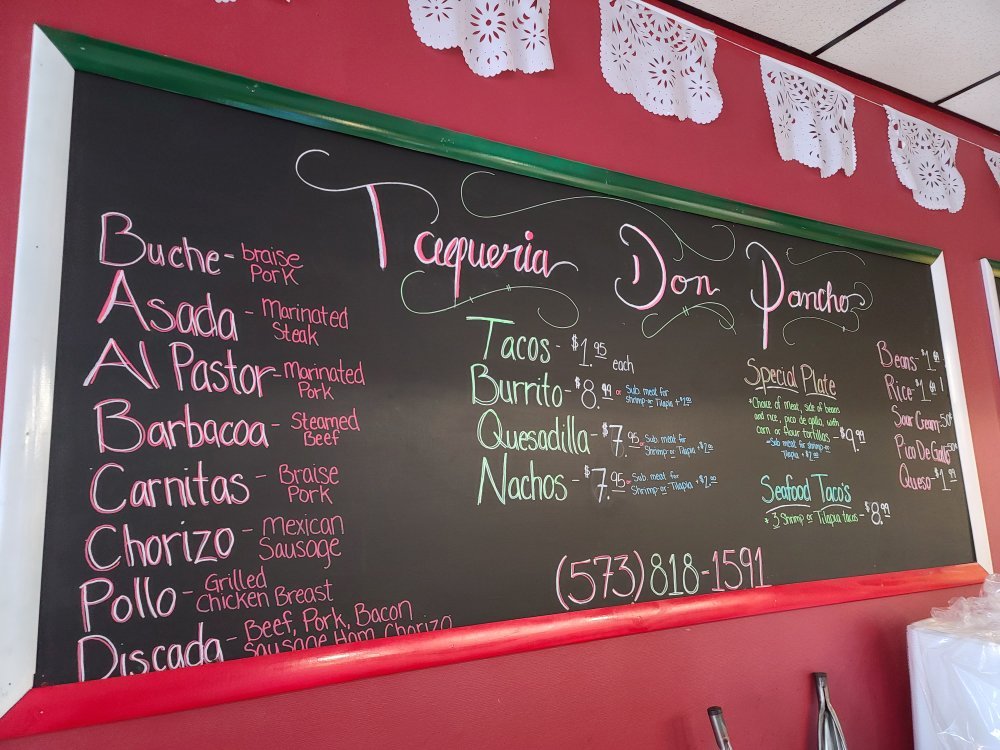 Taqueria Don Pancho
Buche - braise
Pork
Asada - Marinated
Steak
Al Pastor - Marinated
Pork
Barbacoa - Steamed
Beef
Carnitas - Braise
Pork
Chorizo - Mexican
Sausage
Pollo - Grilled
Chicken Breast
Discada - Beef, Pork, Bacon
Sausage Ham, Chorizo
Tacos - $1.95 each
Burrito - $8.99 or Sub. meat for
Shrimp or Tilapia +$1.00
Quesadilla - $7.95 or Sub. meat for
Shrimp or Tilapia +$2.00
Nachos - $7.95 or Sub. meat for
Shrimp or Tilapia +$2.00
Special Plate
*Choice of meat, side of beans
and rice, pico de gallo, with
corn or flour tortillas - $9.99
*Sub meat for shrimp or
Tilapia +
Seafood Taco's
* 3 Shrimp or Tilapia tacos - $8.99
Beans - $1.
Rice - $1.
Sour Cream - 50¢
Pico De Gallo 50¢
Queso - $1.
(573) 818-1591